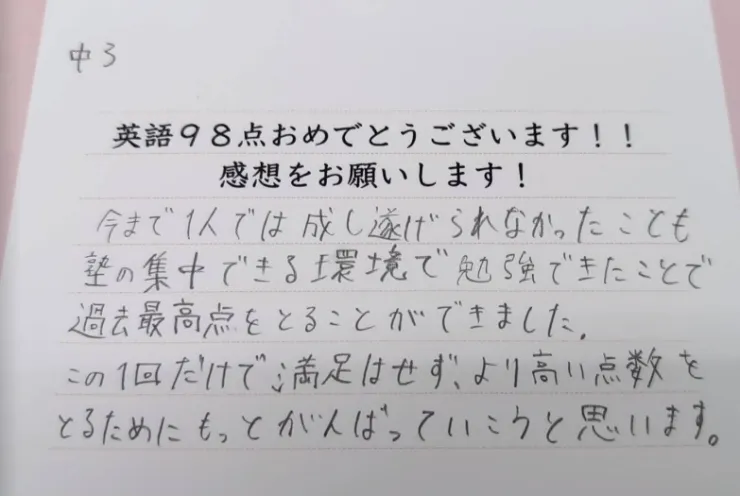 中3
英語98点おめでとうございます！！
感想をお願いします！
今まで1人では成し遂げられなかったことも
塾の集中できる環境で勉強できたことで
過去最高点をとることができました。
この1回だけで満足はせず、より高い点数を
とるためにもっとがんばっていこうと思います。